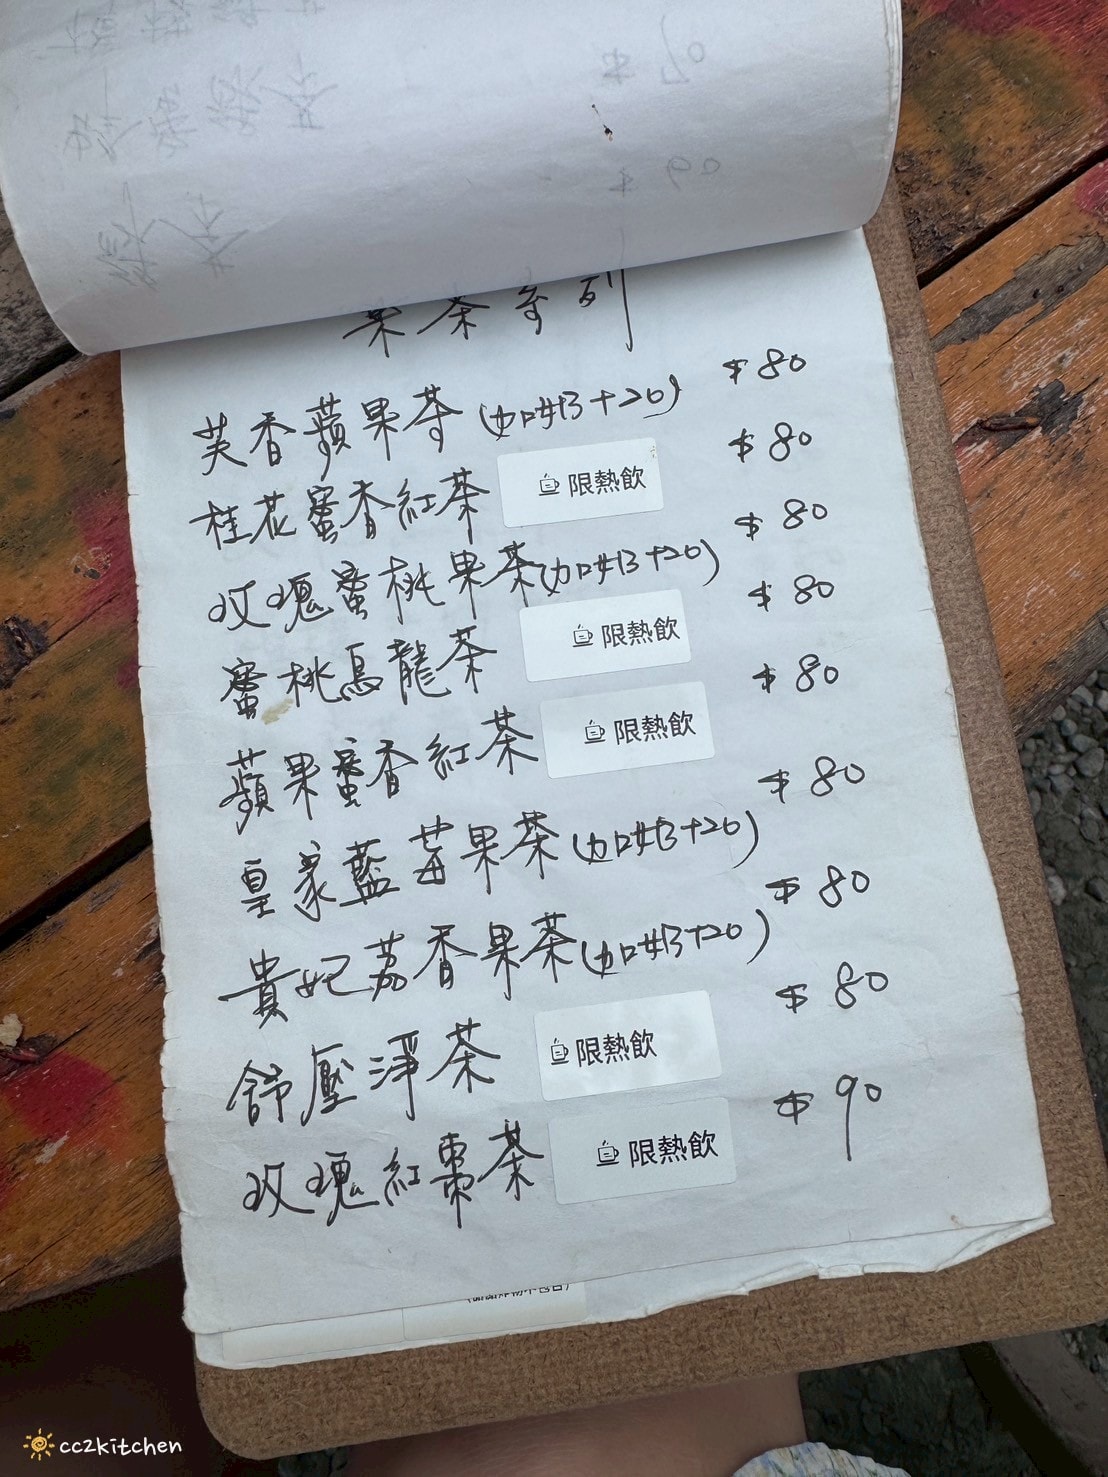 $70
$60
綠茶
果茶系列
芙香蘋果茶(加味B+20) $80
桂花蜜香紅茶 限熱飲 $80
玫瑰蜜桃果茶(加味B+20) $80
蜜桃烏龍茶 限熱飲 $80
蘋果蜜香紅茶 限熱飲 $80
皇家藍莓果茶(加味B+20) $80
貴妃荔香果茶(加味B+20) $80
舒壓淨茶 限熱飲 $80
玫瑰紅棗茶 限熱飲 $90
cc2kitchen